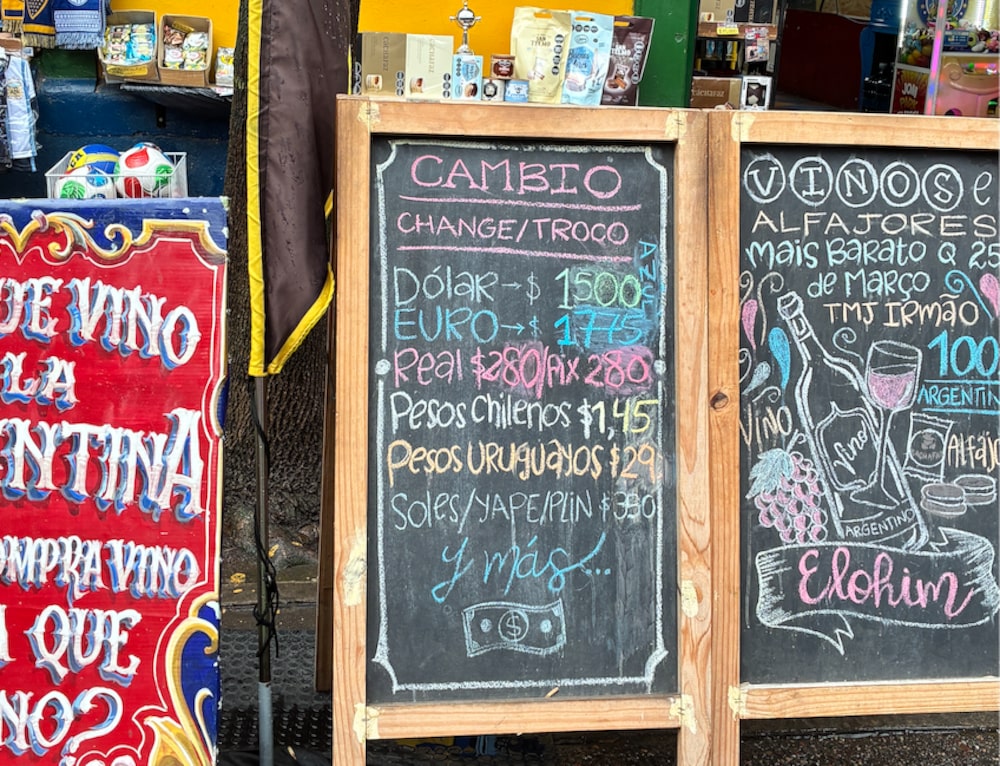 DE VINO
LA
NTINA
OMPRA VINO
QUE
NO?
CAMBIO
CHANGE/TROCO
AZUL
DÓLAR → $ 1500
EURO → $ 1775
Real $280/Pix 280
Pesos Chilenos $1,45
Pesos URUGUAYOS $29
SOLES/YAPE/PLIN $350
y más...
$
VINOS e
ALFAJORES
Mais Barato Q 25
de Março
TMJ IRMÃO
100
ARGENTIN
VINO
Vino
Alfaj
ARGENTINO
Elohim